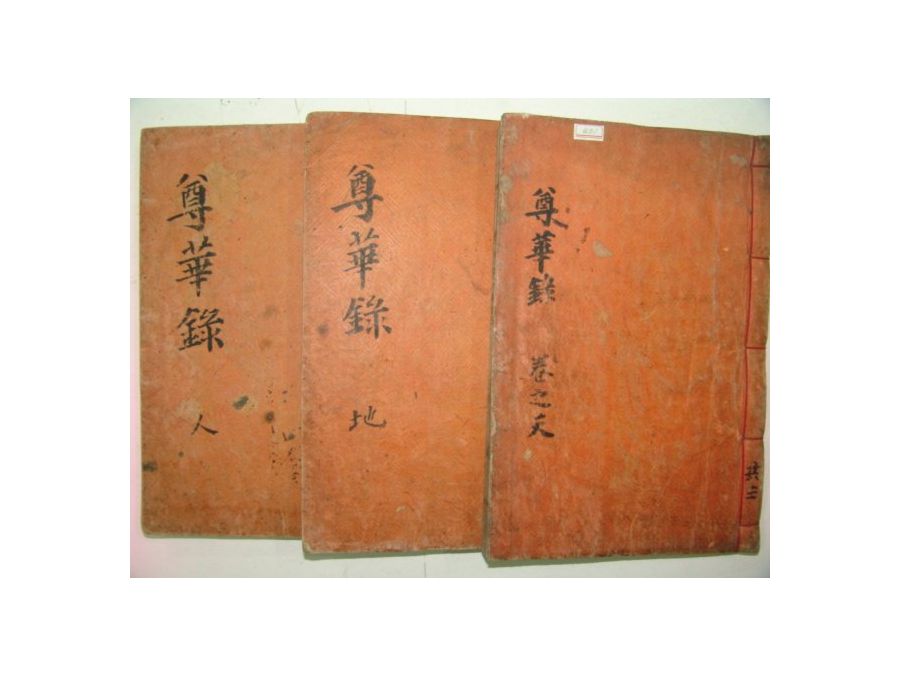 尊華錄
卷之天
共三
尊華錄
地
尊華錄
人